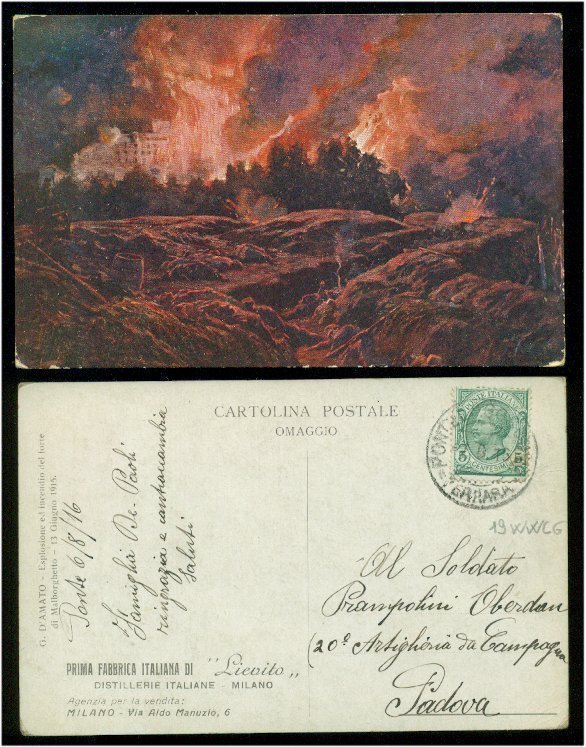 CARTOLINA POSTALE
OMAGGIO
G. D'AMATO - Esplosione ed incendio del forte
di Malborghetto - 13 Giugno 1915.
Ponte 6/8/16
Famiglia De-Paoli
ringrazia e contracambia
saluti
PRIMA FABBRICA ITALIANA DI "Lievito"
DISTILLERIE ITALIANE - MILANO
Agenzia per la vendita:
MILANO - Via Aldo Manuzio, 6
POSTE ITALIANE
CENTESIMI
FERRARA
19WWLG
Al Soldato
Prampolini Oberdan
(20º Artiglieria da Campagna
Padova